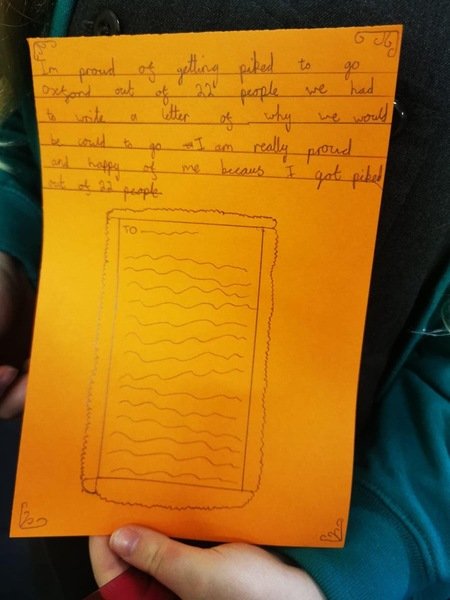 I'm proud of getting piked to go
Oxford out of 22 people we had
to write a letter of why we would
be could to go I am really proud
and happy of me becaus I got piked
out of 22 people
TO